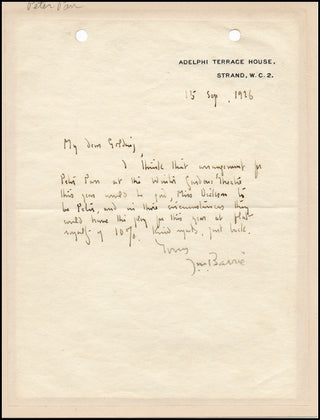 Peter Pan
ADELPHI TERRACE HOUSE,
STRAND, W.C.2.
15 Sep, 1926
My dear Golding,
I think that arrangement for
Peter Pan at the Winter Gardens Theatre
this year would be give Miss Dickson to
be Peter, and in these circumstances they
could have the play for this year at flat
royalty of 10%. Kind regards, just back.
Yours
J M Barrie